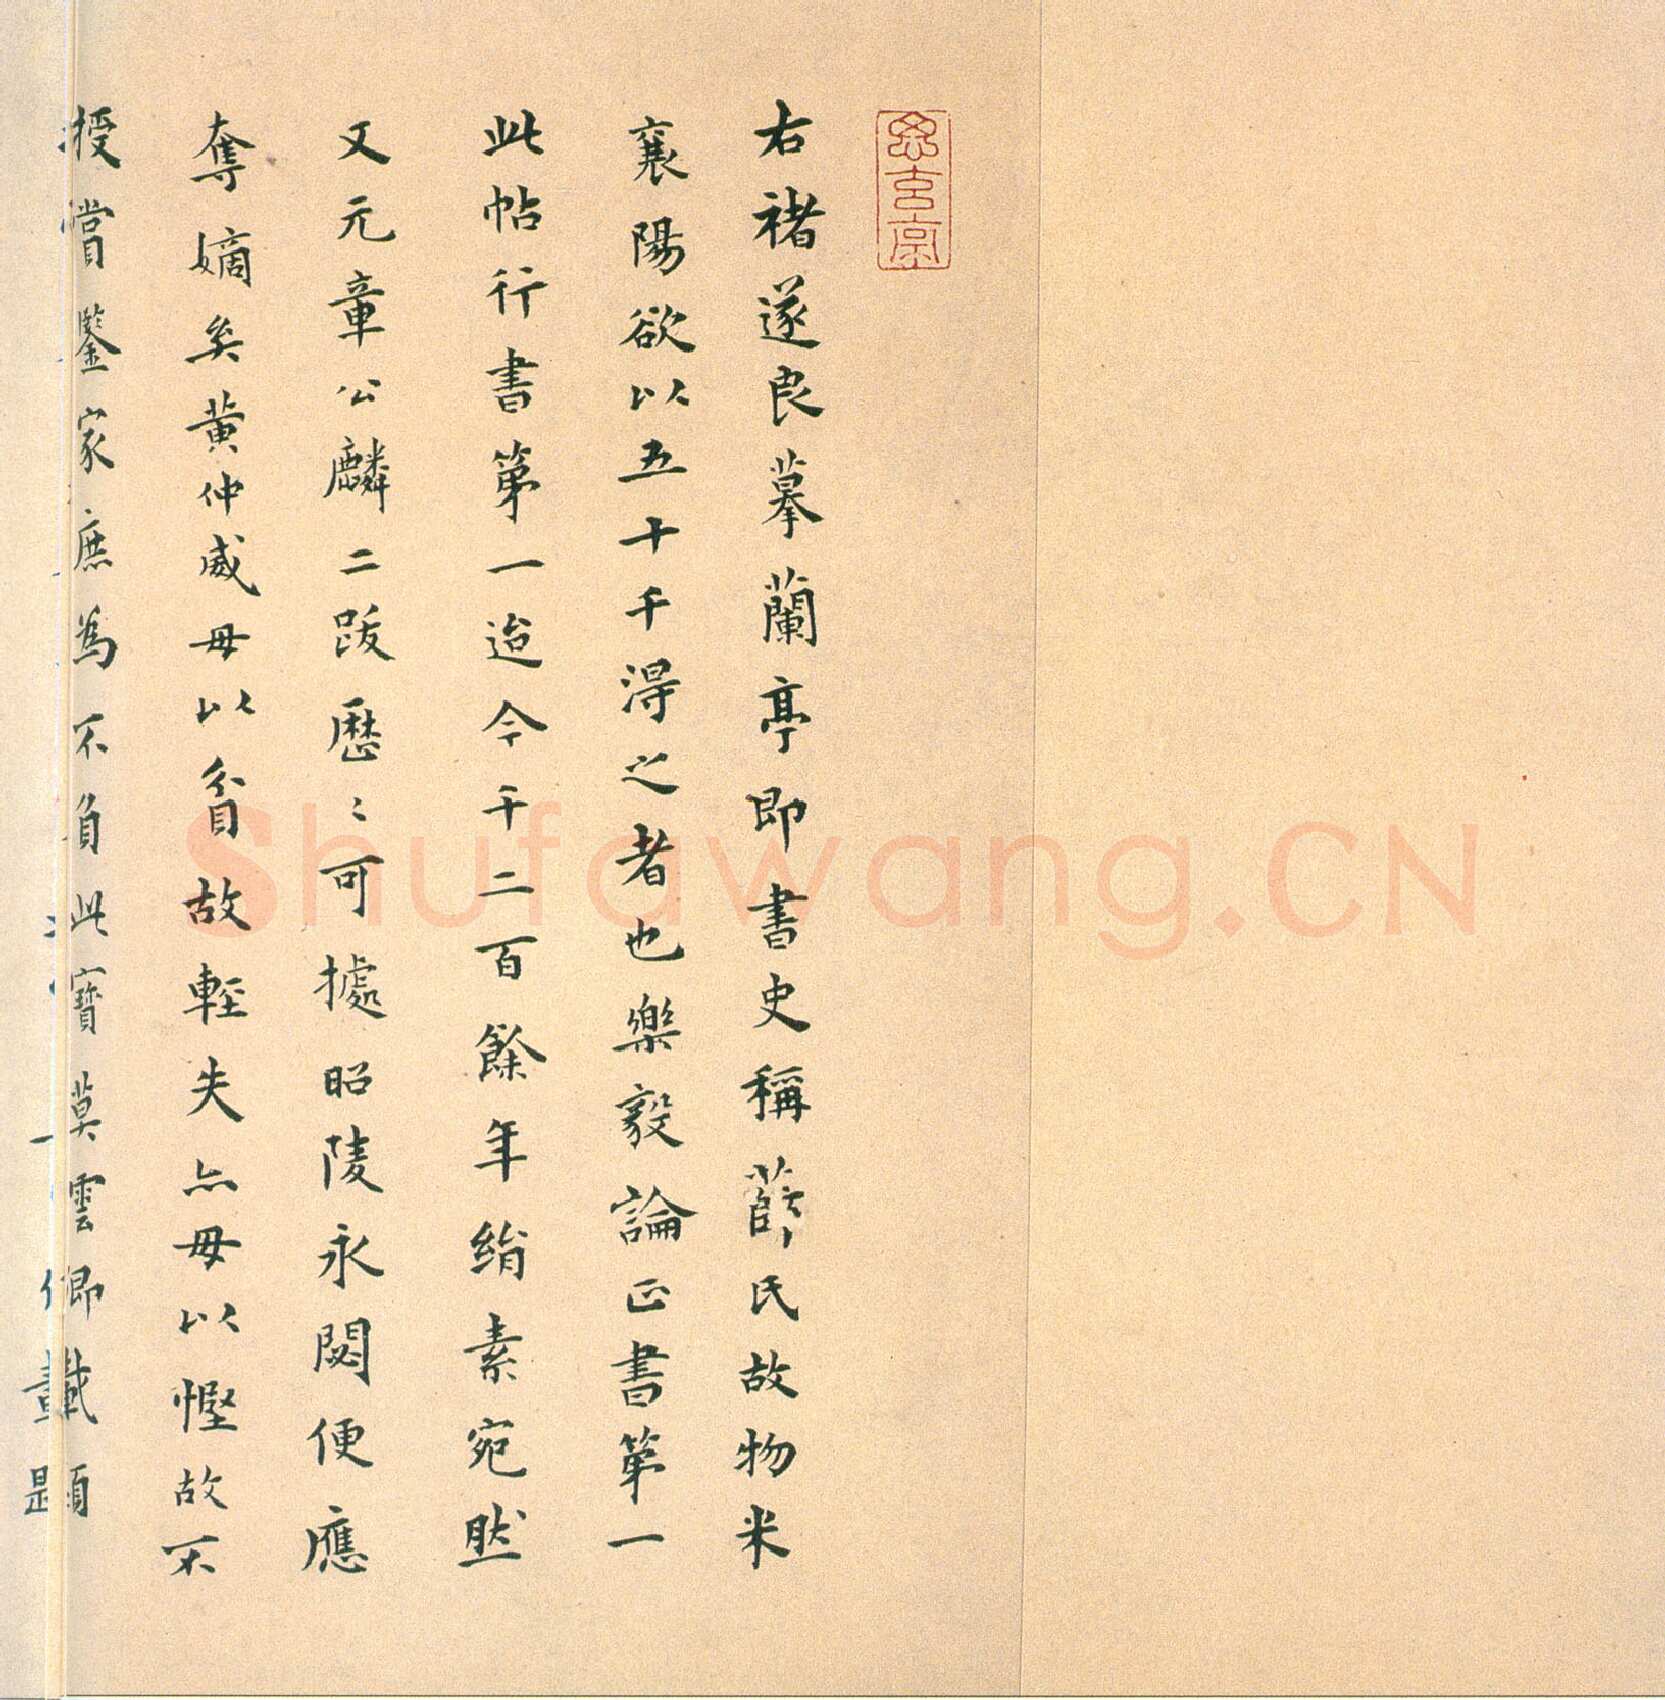 右褚遂良摹蘭亭即書史稱薛氏故物米
襄陽欲以五十千淂之者也樂毅論正書第一
此帖行書第一迨今千二百餘年絹素宛然
又元章公麟二跋歷〻可據昭陵永閟便應
奪嫡矣黄仲威毋以貧故輕失亦毋以慳故不
授賞鑒家庶為不負此寶莫雲卿韱題
Shufawang.CN